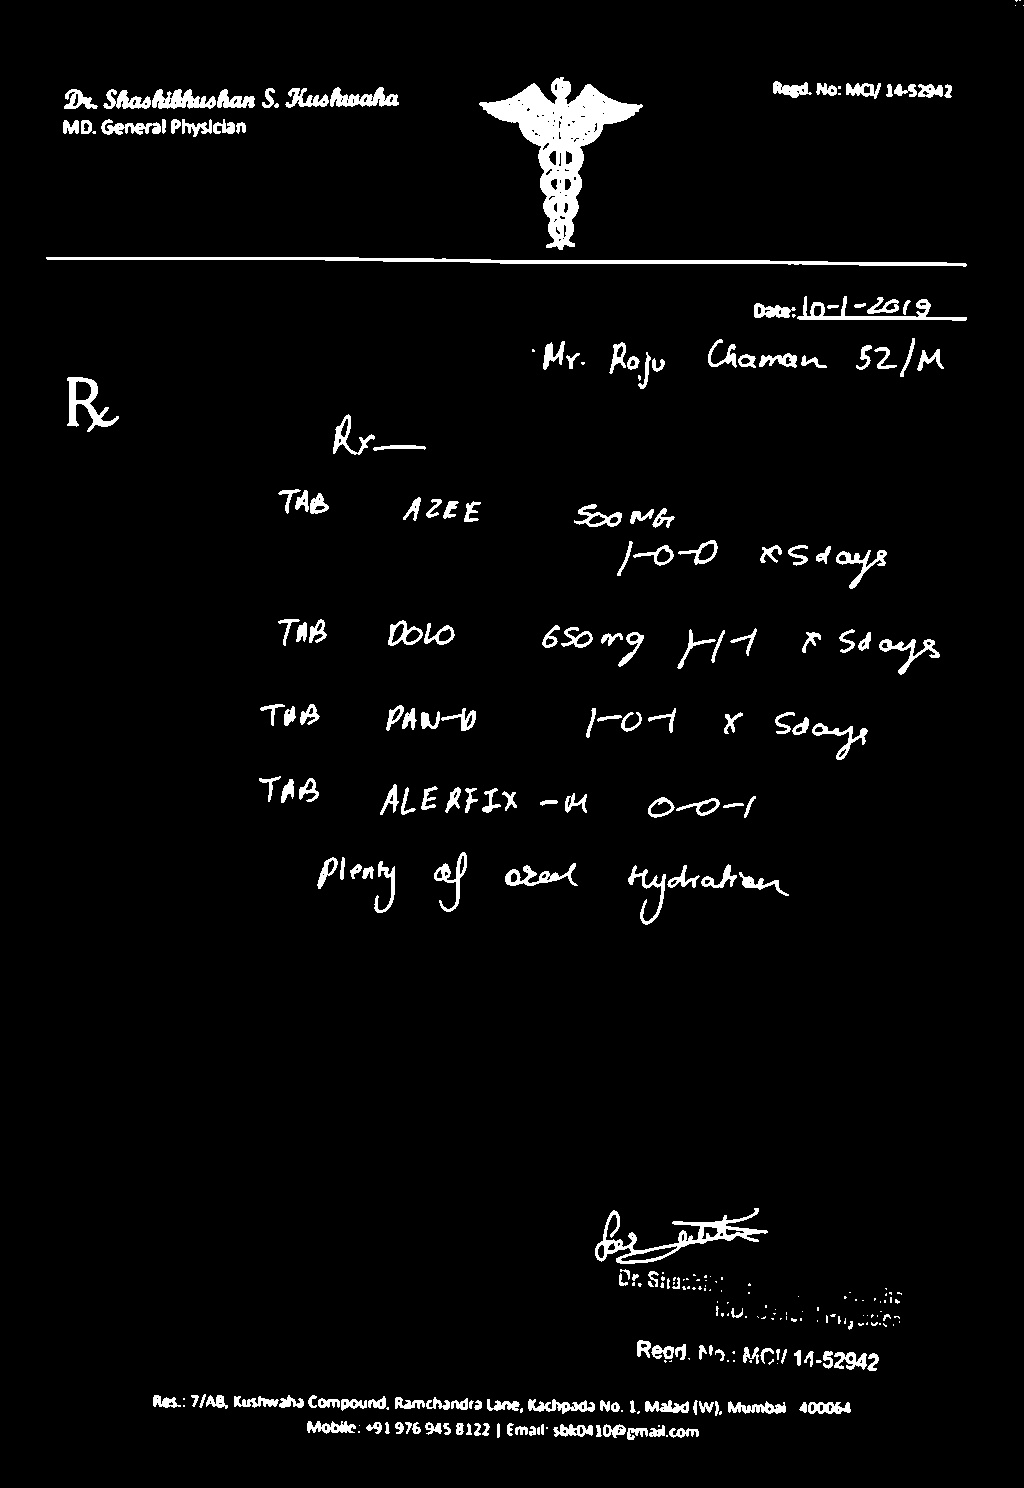 Dr. Shashibhushan S. Kushwaha
MD. General Physician
Regd. No: MCI/ 14-52942
Date: 10-1-2019
Mr. Raju Chaman 52/M
Rx
Rx
TAB AZEE 500MG
1-0-0 x 5days
TAB DOLO 650mg 1-1-1 x 5days
TAB PAN-D 1-0-1 x 5days
TAB ALERFIX -M 0-0-1
Plenty of oral Hydration
Dr.
MD.
Regd. No.: MCI/ 14-52942
Res.: 7/AB, Kushwaha Compound, Ramchandra Lane, Kachpada No. 1, Malad (W), Mumbai 400064
Mobile: +91 976 945 8122 | Email: sbk0410@gmail.com